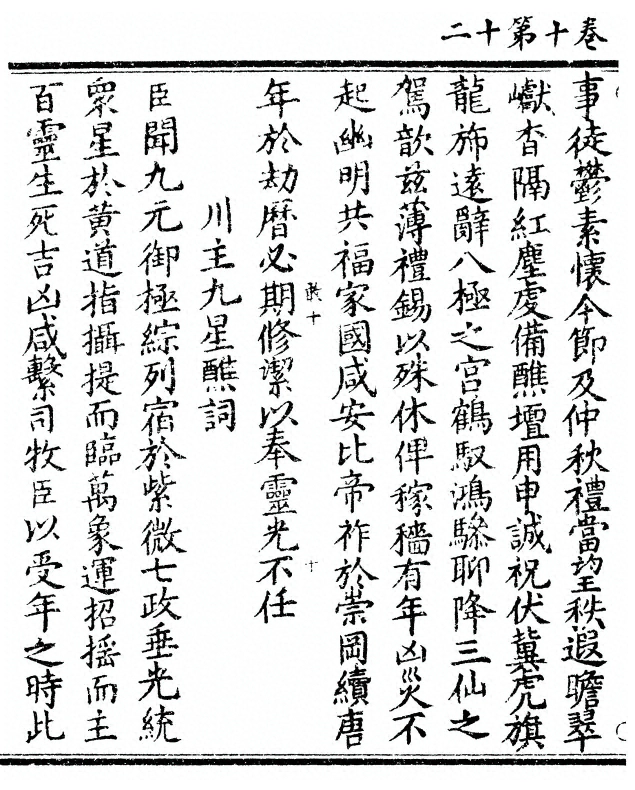 卷十第十二
事徒鬱素懷今節及仲秋禮當望秩遐瞻翠
巘杳隔紅塵虔備醮壇用申誠祝伏冀虎旗
龍斾遠辭八極之宮鶴馭鴻驂聊降三仙之
駕歆茲薄禮錫以殊休俾稼穡有年凶災不
起幽明共福家國咸安比帝祚於崇岡續唐
年於劫曆必期修潔以奉靈光不任
川主九星醮詞
臣聞九元御極綜列宿於紫微七政垂光統
衆星於黃道指攝提而臨萬象運招搖而主
百靈生死吉凶咸繫司牧臣以受年之時此